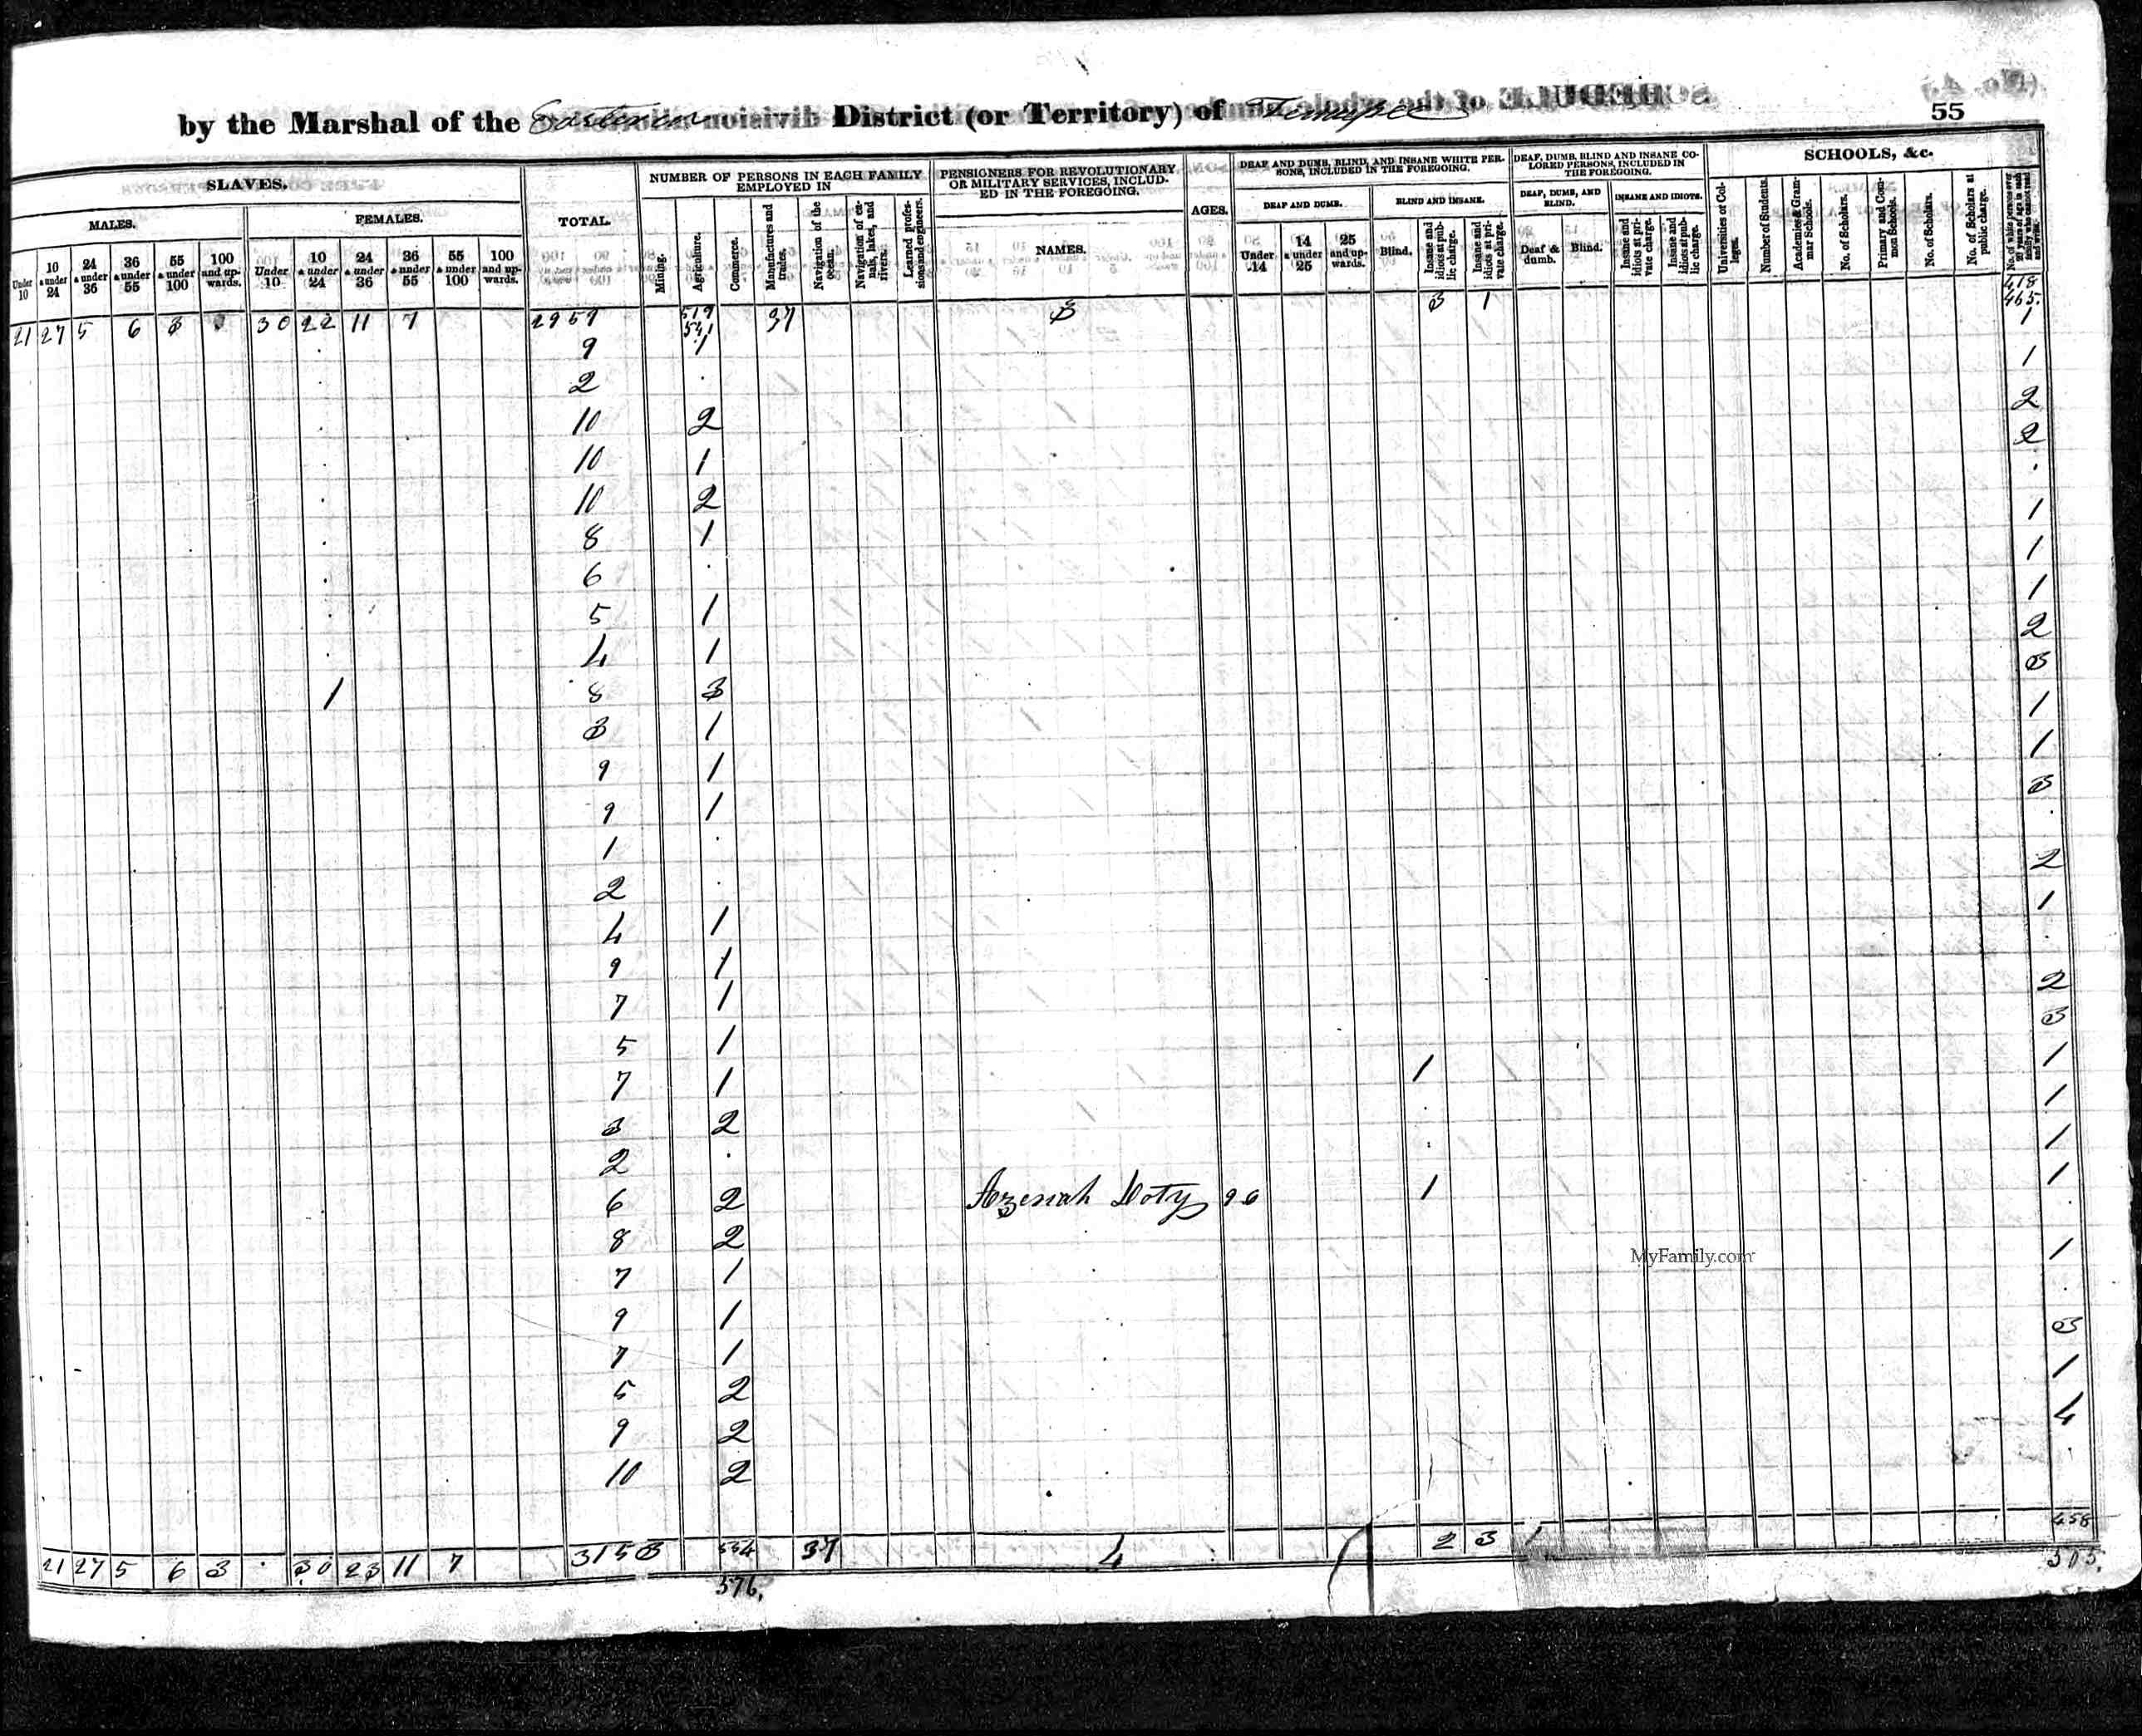 by the Marshal of the Eastern division District (or Territory) of Tennessee
55
SLAVES.
MALES.
FEMALES.
Under 10
10 & under 24
24 & under 36
36 & under 55
55 & under 100
100 and upwards.
Under 10
10 & under 24
24 & under 36
36 & under 55
55 & under 100
100 and upwards.
TOTAL.
NUMBER OF PERSONS IN EACH FAMILY EMPLOYED IN
Mining.
Agriculture.
Commerce.
Manufactures and trades.
Navigation of the ocean.
Navigation of canals, lakes, and rivers.
Learned professions and engineers.
PENSIONERS FOR REVOLUTIONARY OR MILITARY SERVICES, INCLUDED IN THE FOREGOING.
NAMES.
AGES.
DEAF AND DUMB, BLIND, AND INSANE WHITE PERSONS, INCLUDED IN THE FOREGOING.
DEAF AND DUMB.
Under 14
14 & under 25
25 and upwards.
BLIND AND INSANE.
Blind.
Insane and idiots at public charge.
Insane and idiots at private charge.
DEAF, DUMB, BLIND AND INSANE COLORED PERSONS, INCLUDED IN THE FOREGOING.
DEAF, DUMB, AND BLIND.
Deaf & dumb.
Blind.
INSANE AND IDIOTS.
Insane and idiots at private charge.
Insane and idiots at public charge.
SCHOOLS, &c.
Universities or Colleges.
Number of Students.
Academies & Grammar Schools.
No. of Scholars.
Primary and Common Schools.
No. of Scholars.
No. of Scholars at public charge.
No. of white persons over 20 years of age in each family who cannot read and write.
21 27 5 6 3 30 22 11 7 2959 519 541 37 3 3 1 418 465.
9 1 1
2 1
10 2 2
10 1 2
10 2
8 1 1
6 1
5 1 1
4 1 2
1 8 3 3
3 1 1
9 1 1
9 1 3
1
2 2
4 1 1
9 1
7 1 2
5 1 3
7 1 1 1
3 2 1
2 1
6 2 Azeriah Doty 96 1 1
8 2
7 1 1
9 1
7 1 3
5 2 1
9 2 4
10 2
21 27 5 6 3 30 23 11 7 3153 554 37 4 2 3 1 458
576. 505.
MyFamily.com